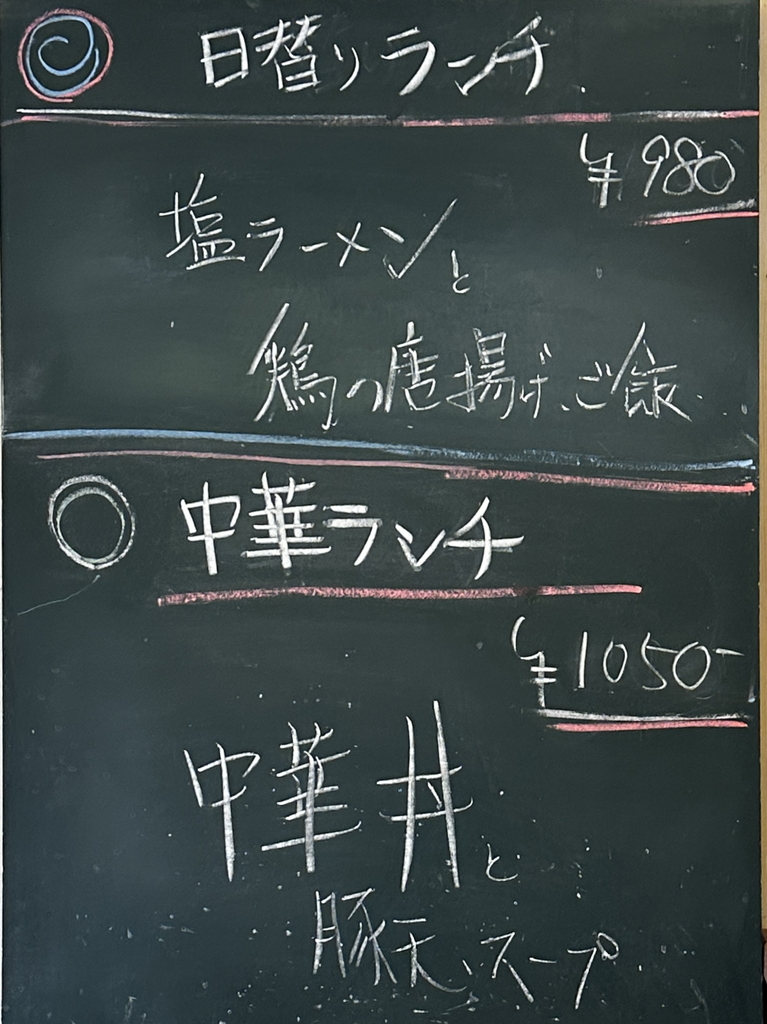 日替りランチ
¥980
塩ラーメンと
鶏の唐揚げ、ご飯
中華ランチ
¥1050-
中華丼と
豚天、スープ